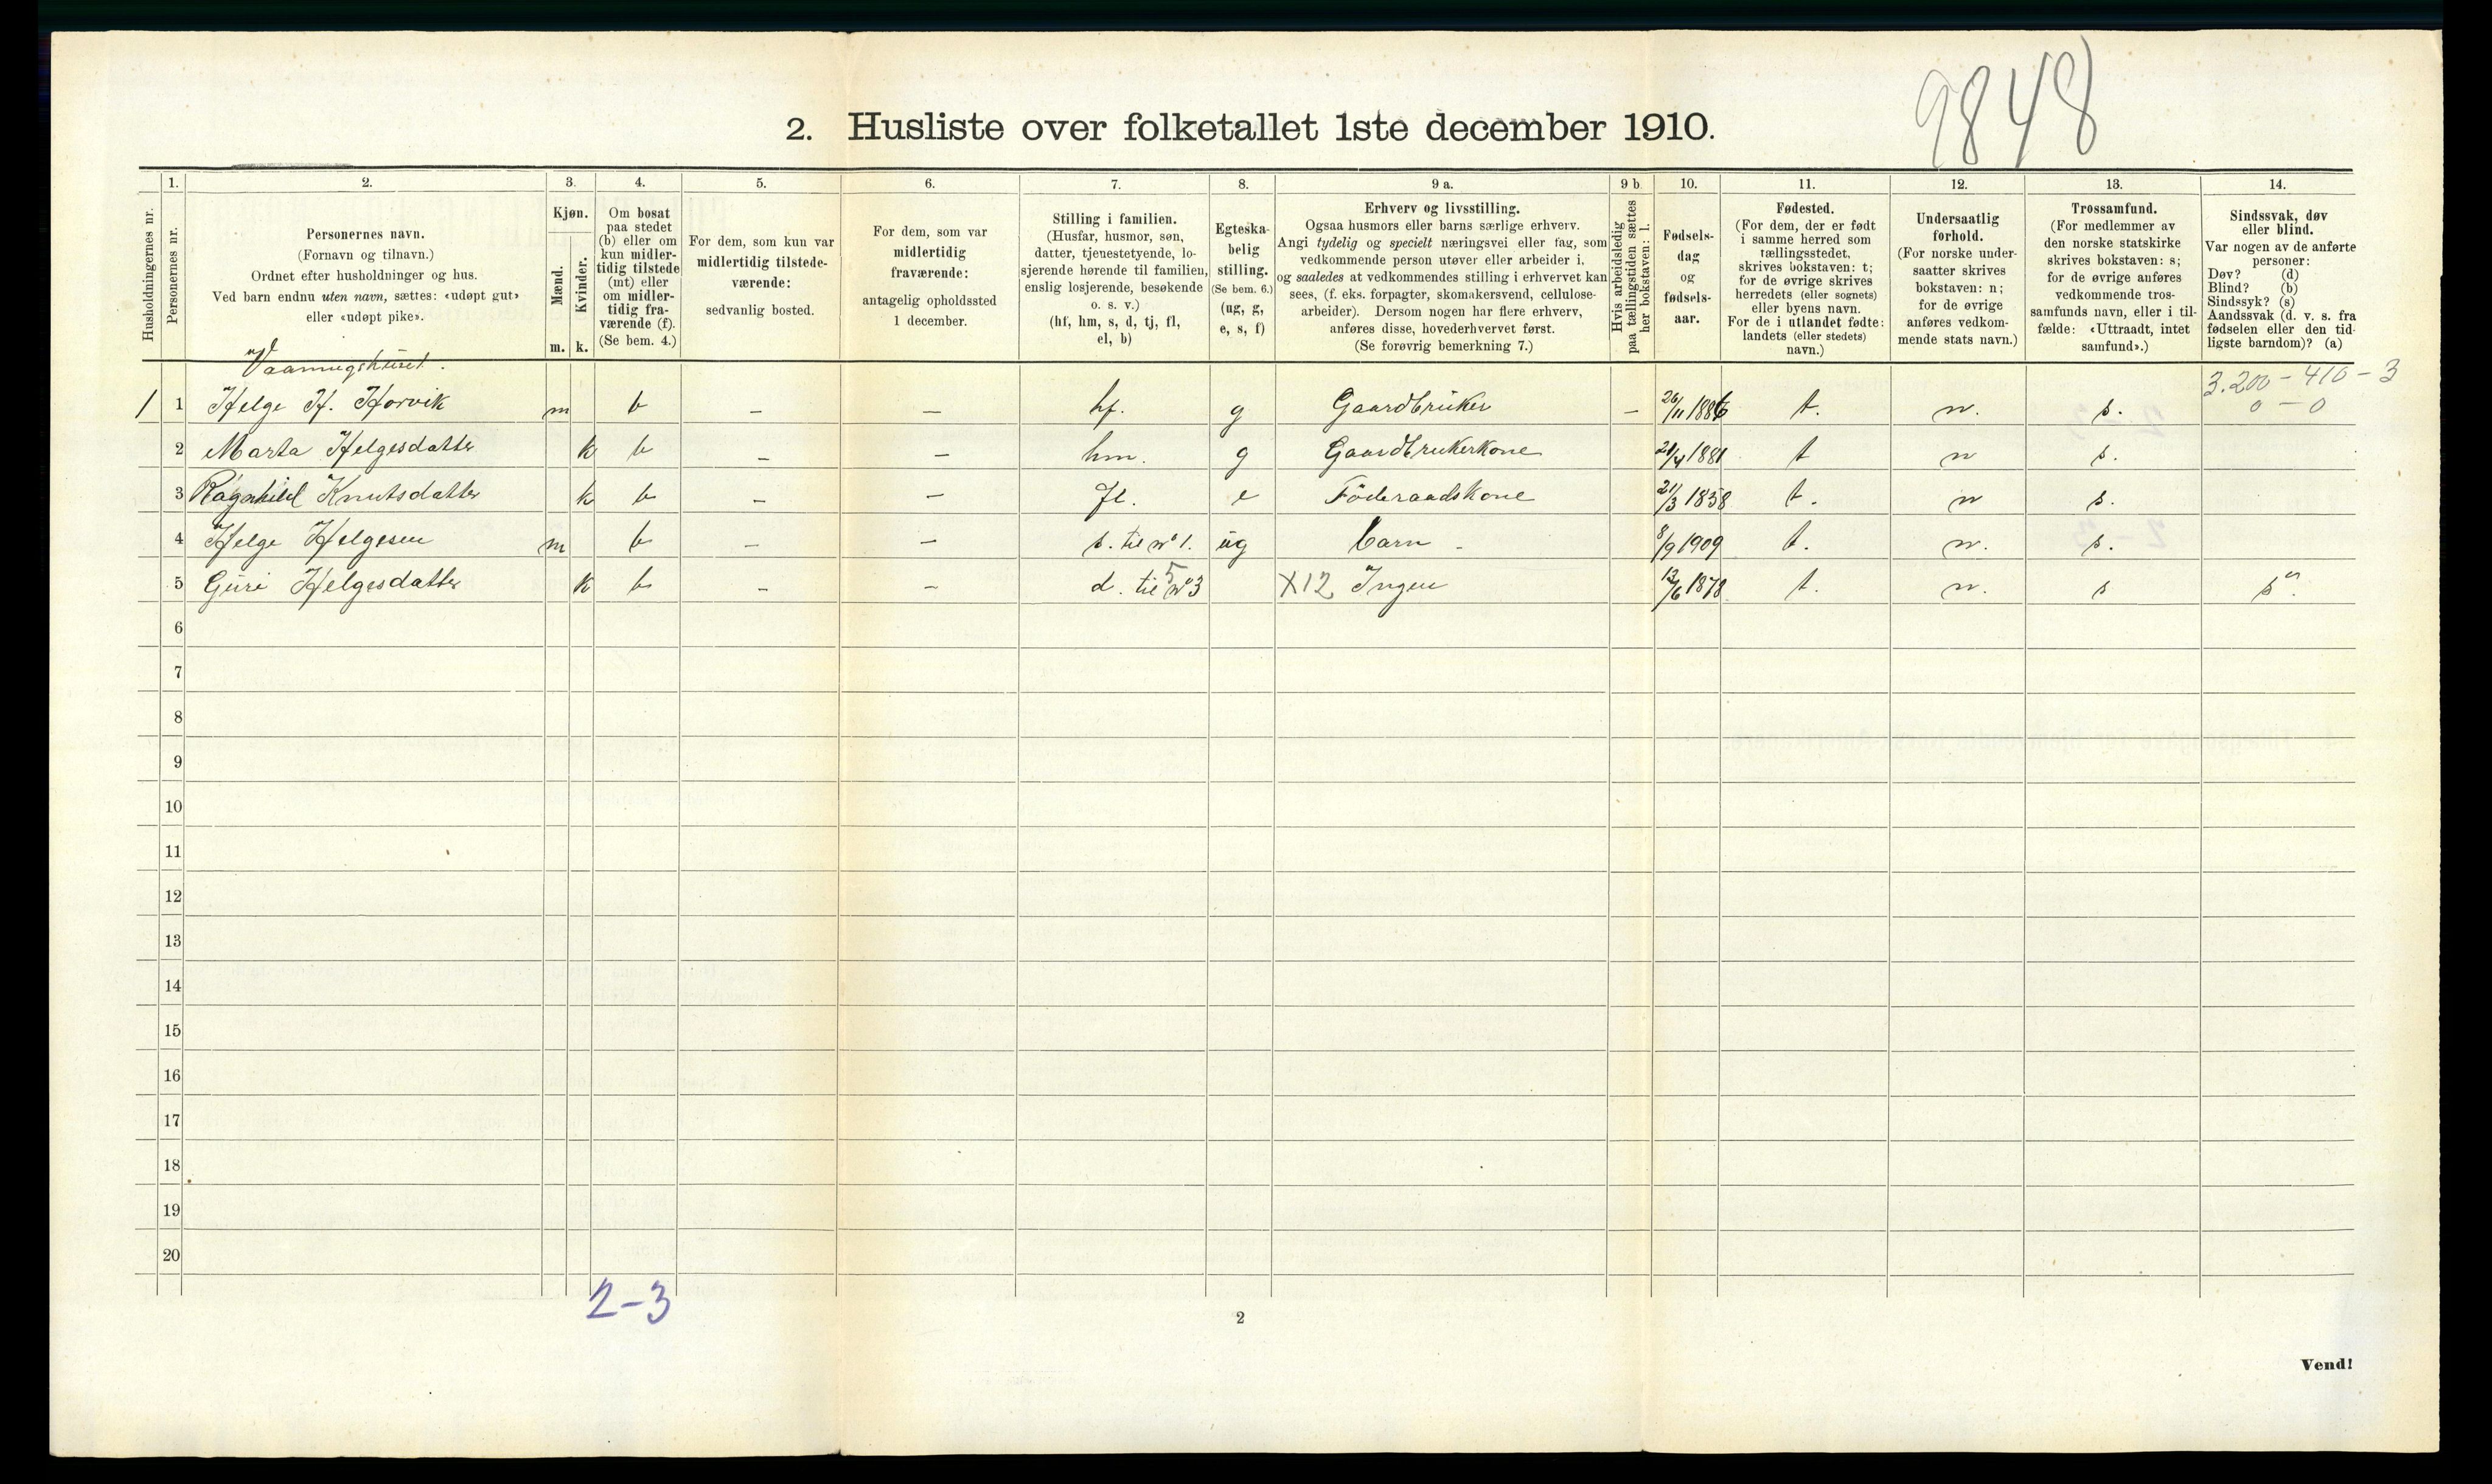 9848
2. Husliste over folketallet 1ste december 1910.
1. 2. 3. 4. 5. 6. 7. 8. 9 a. 9 b 10. 11. 12. 13. 14.
Husholdningernes nr.
Personernes nr.
Personernes navn.
(Fornavn og tilnavn.)
Ordnet efter husholdninger og hus.
Ved barn endnu uten navn, sættes: «udøpt gut»
eller «udøpt pike».
Kjøn.
Mænd.
Kvinder.
m. k.
Om bosat
paa stedet
(b) eller om
kun midler-
tidig tilstede
(mt) eller
om midler-
tidig fra-
værende (f).
(Se bem. 4.)
For dem, som kun var
midlertidig tilstede-
værende:
sedvanlig bosted.
For dem, som var
midlertidig
fraværende:
antagelig opholdssted
1 december.
Stilling i familien.
(Husfar, husmor, søn,
datter, tjenestetyende, lo-
sjerende hørende til familien,
enslig losjerende, besøkende
o. s. v.)
(hf, hm, s, d, tj, fl,
el, b)
Egteska-
belig
stilling.
(Se bem. 6.)
(ug, g,
e, s, f)
Erhverv og livsstilling.
Ogsaa husmors eller barns særlige erhverv.
Angi tydelig og specielt næringsvei eller fag, som
vedkommende person utøver eller arbeider i,
og saaledes at vedkommendes stilling i erhvervet kan
sees, (f. eks. forpagter, skomakersvend, cellulose-
arbeider). Dersom nogen har flere erhverv,
anføres disse, hovederhvervet først.
(Se forøvrig bemerkning 7.)
Hvis arbeidsledig
paa tællingstiden sættes
her bokstaven: l.
Fødsels-
dag
og
fødsels-
aar.
Fødested.
(For dem, der er født
i samme herred som
tællingsstedet,
skrives bokstaven: t;
for de øvrige skrives
herredets (eller sognets)
eller byens navn.
For de i utlandet fødte:
landets (eller stedets)
navn.)
Undersaatlig
forhold.
(For norske under-
saatter skrives
bokstaven: n;
for de øvrige
anføres vedkom-
mende stats navn.)
Trossamfund.
(For medlemmer av
den norske statskirke
skrives bokstaven: s;
for de øvrige anføres
vedkommende tros-
samfunds navn, eller i til-
fælde: «Uttraadt, intet
samfund».)
Sindssvak, døv
eller blind.
Var nogen av de anførte
personer:
Døv? (d)
Blind? (b)
Sindssyk? (s)
Aandssvak (d. v. s. fra
fødselen eller den tid-
ligste barndom)? (a)
Vaaningshuset.
3.200 - 410 - 3
0 - 0
1 1 Helge H. Horvik m b - - hf. g Gaardbruker - 26/11 1886 t. n. s.
2 Marta Helgesdatter k b - - hm. g Gaardbrukerkone 21/4 1881 t n s.
3 Ragnhild Knutsdatter k b - - fl. e Föderaadskone 21/3 1858 t. n s.
4 Helge Helgesen m b - - s. til no 1. ug barn - 8/9 1909 t. n. s.
5 Guri Helgesdatter k b - - d. til no 3 5 X12 Ingen 12/6 1878 t. n. s s.
6
7
8
9
10
11
12
13
14
15
16
17
18
19
20
2-3
2
Vend!